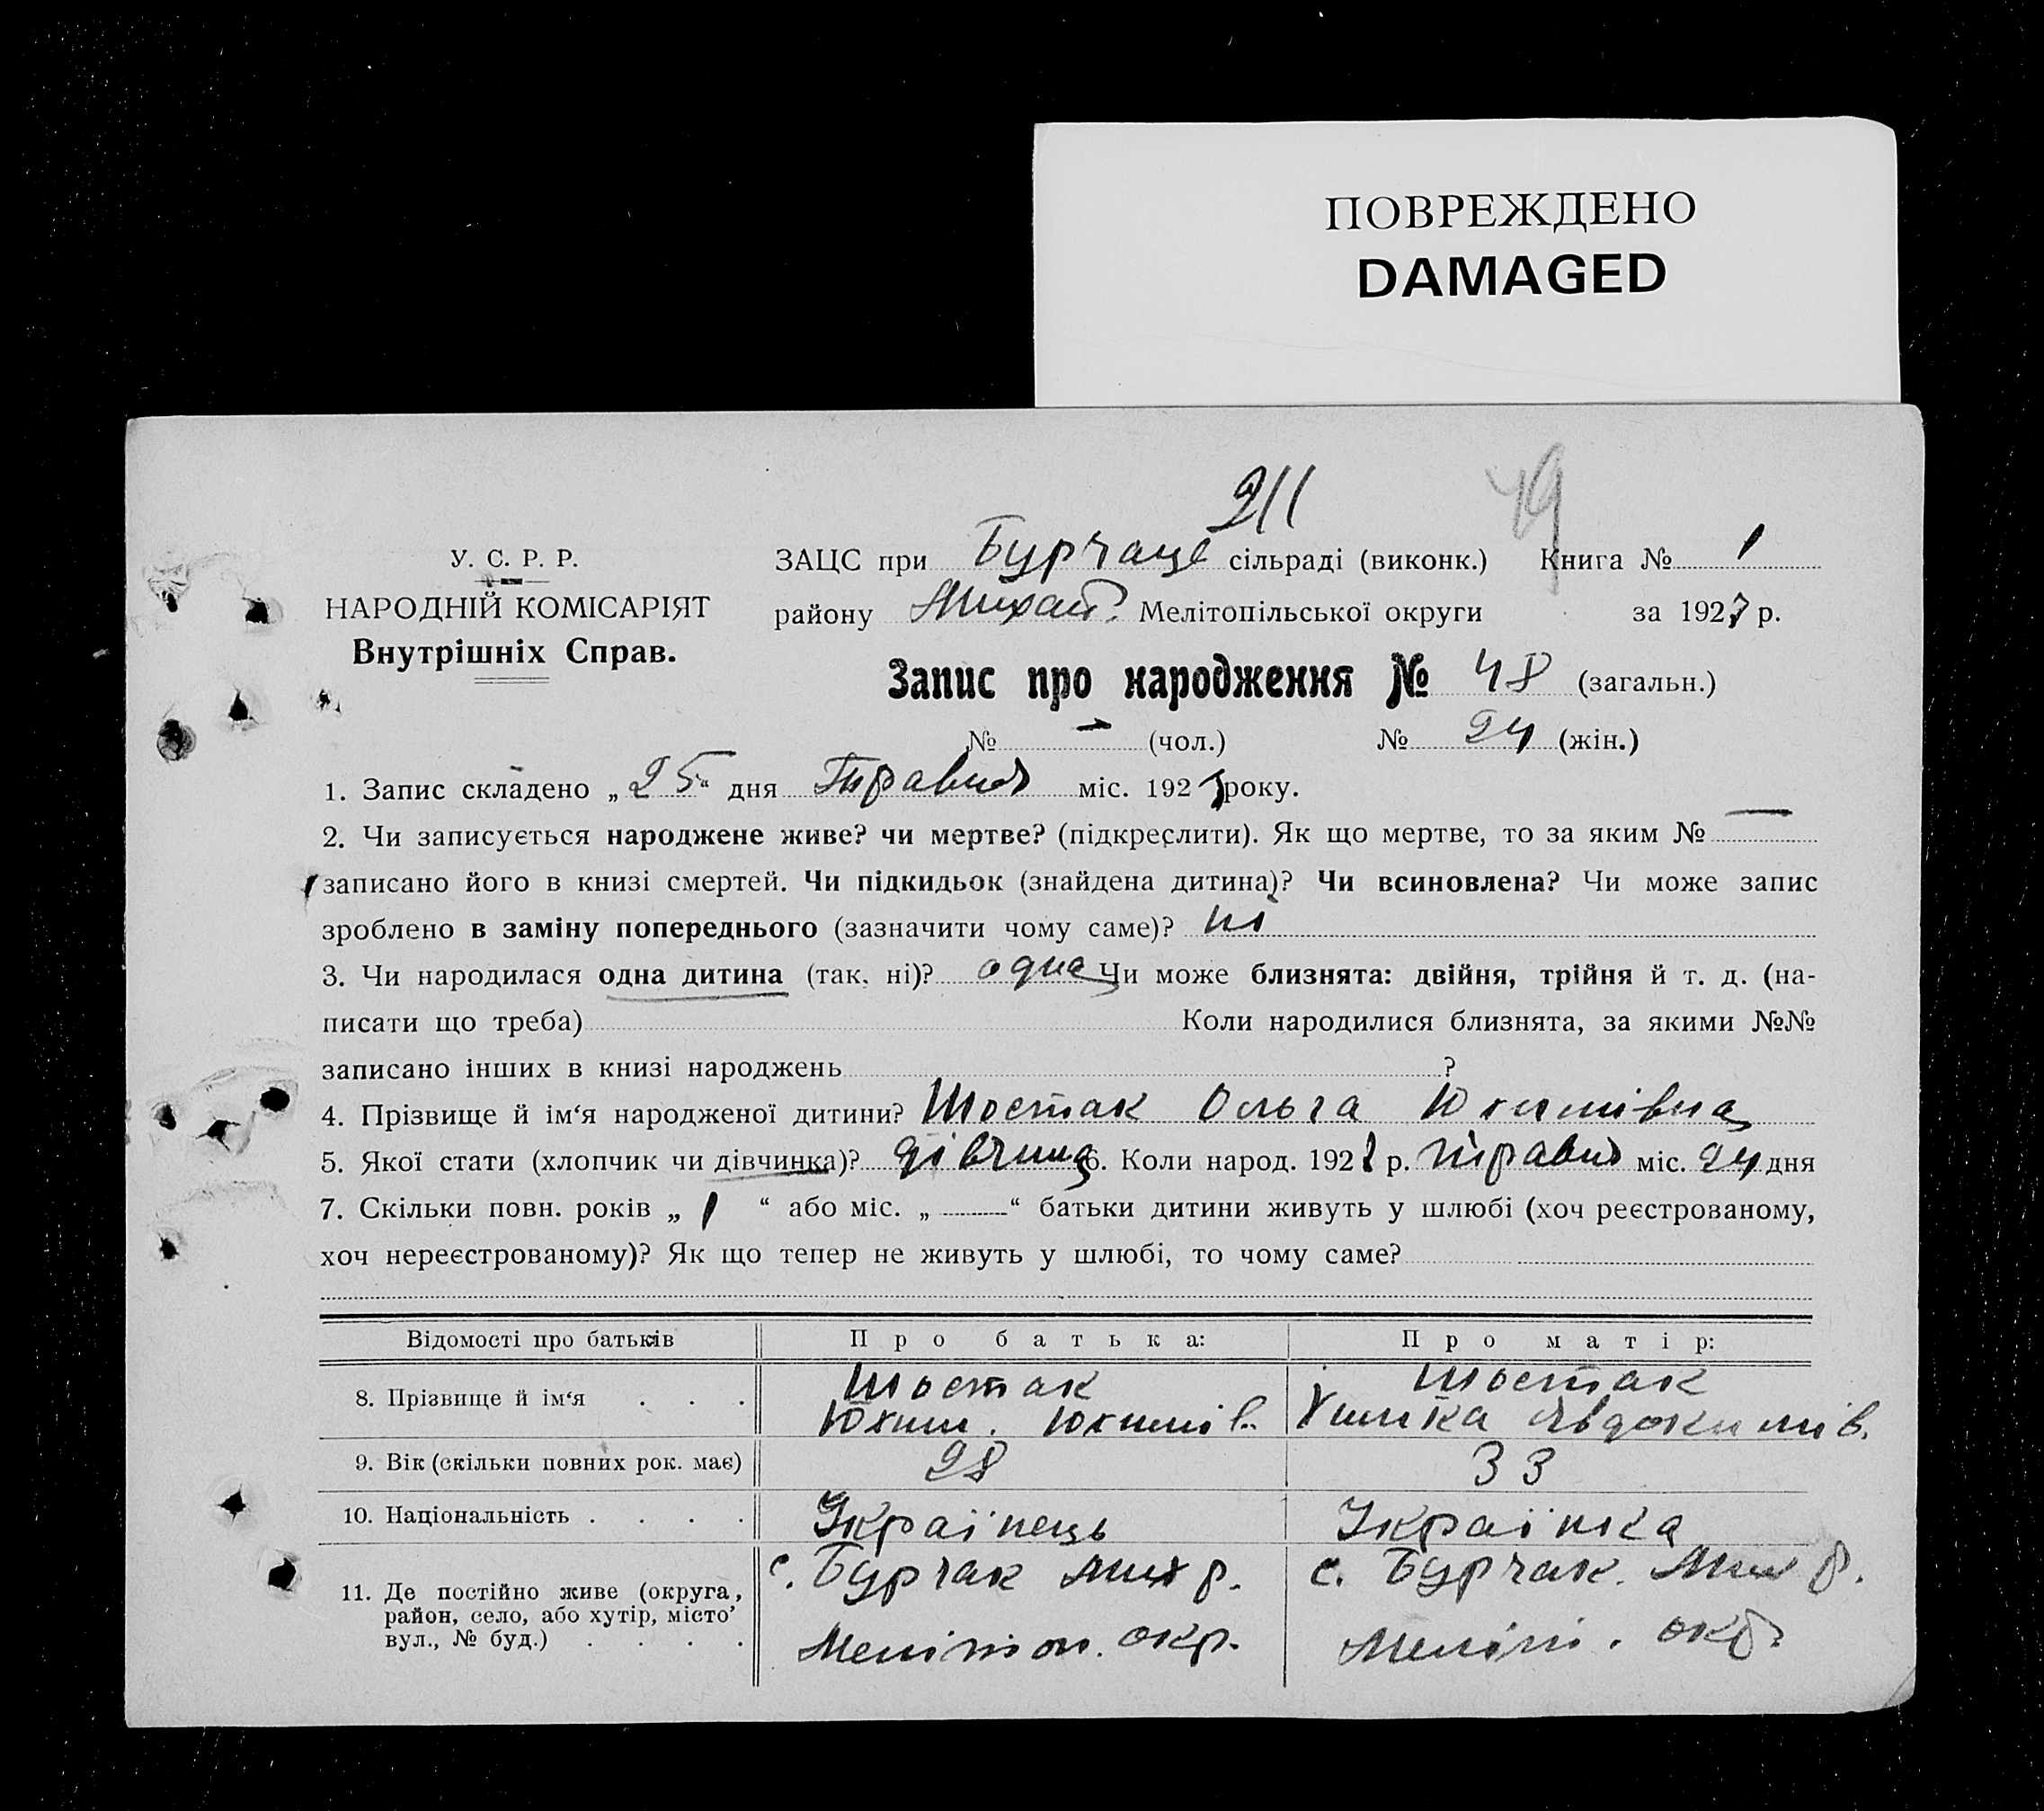 ПОВРЕЖДЕНО
DAMAGED
211 49
У. С. Р. Р.
НАРОДНІЙ КОМІСАРІЯТ
Внутрішніх Справ.
ЗАЦС при Бурчаце сільраді (виконк.) Книга № 1
району Михай. Мелітопільської округи за 192 р.
Запис про народження № 48 (загальн.)
№ — (чол.) № 24 (жін.)
1. Запис складено „25“ дня Травня міс. 192 року.
2. Чи записується народжене живе? чи мертве? (підкреслити). Як що мертве, то за яким № —
записано його в книзі смертей. Чи підкидьок (знайдена дитина)? Чи всиновлена? Чи може запис
зроблено в заміну попереднього (зазначити чому саме)? ні
3. Чи народилася одна дитина (так, ні)? одна Чи може близнята: двійня, трійня й т. д. (на-
писати що треба) Коли народилися близнята, за якими №№
записано інших в книзі народжень ?
4. Прізвище й ім‘я народженої дитини? Шостак Ольга Юхимівна
5. Якої стати (хлопчик чи дівчинка)? дівчина 6. Коли народ. 192 р. травня міс. 24 дня
7. Скільки повн. років „ 1 “ або міс. „ — “ батьки дитини живуть у шлюбі (хоч реєстрованому,
хоч нереєстрованому)? Як що тепер не живуть у шлюбі, то чому саме?
Відомості про батьків Про батька: Про матір:
8. Прізвище й ім‘я . . . Шостак Юхим. Юхимів. Шостак Явдокимів.
9. Вік (скільки повних рок. має) 28 33
10. Національність . . . . Українець Українка
11. Де постійно живе (округа, район, село, або хутір, місто’ вул., № буд.) . . . . с. Бурчак Мих р. Мелітоп. окр. с. Бурчак. Мих р. Меліт. окр.